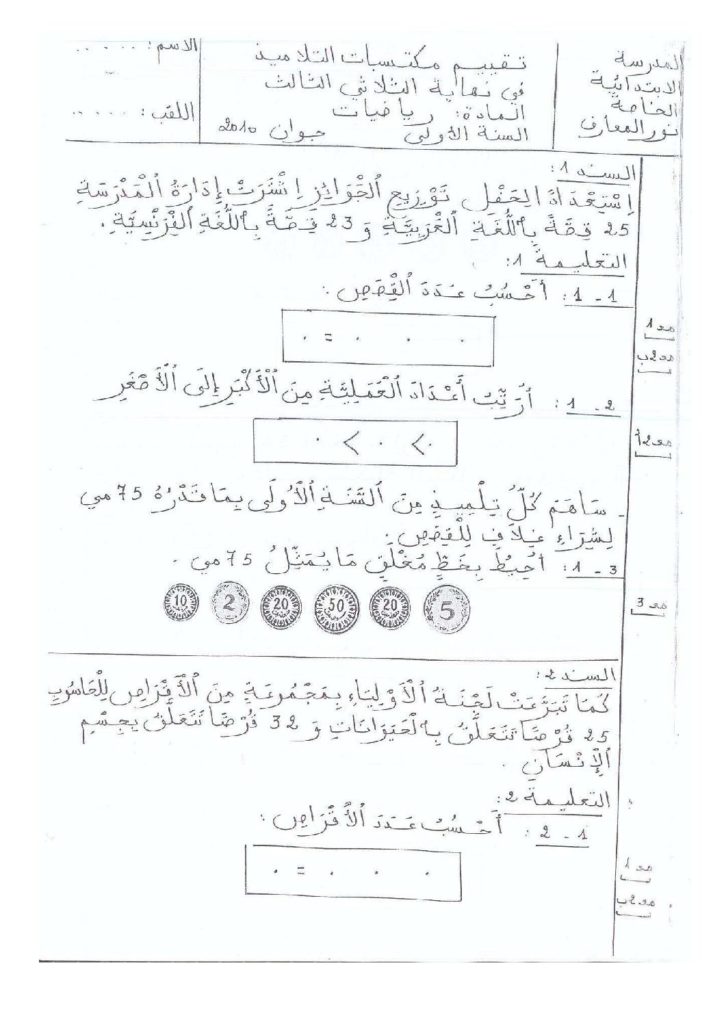 المدرسة
الابتدائية
الخاصة
نور المعارف
تقييم مكتسبات التلاميذ
في نهاية الثلاثي الثالث
المادة: رياضيات
السنة الأولى جوان 2010
الاسم: .. . . ..
اللقب: .. . . ..
السند 1:
اِسْتِعْدَادًا لِحَفْلِ تَوْزِيعِ الْجَوَائِزِ اِشْتَرَتْ إِدَارَةُ الْمَدْرَسَةِ
25 قِصَّةً بِاللُّغَةِ الْعَرَبِيَّةِ وَ 23 قِصَّةً بِاللُّغَةِ الْفِرَنْسِيَّةِ.
التعليمة 1:
1 - 1: أَحْسُبُ عَدَدَ الْقِصَصِ:
. . . = .
مع 1
مع 2ب
1 - 2: أُرَتِّبُ أَعْدَادَ الْعَمَلِيَّةِ مِنَ الْأَكْبَرِ إِلَى الْأَصْغَرِ
. > . > .
مع 2أ
- سَاهَمَ كُلُّ تِلْمِيذٍ مِنَ السَّنَةِ الْأُولَى بِمَا قَدْرُهُ 75 مي
لِشِرَاءِ غِلَافٍ لِلْقِصَصِ.
1 - 3: أُحِيطُ بِخَطٍّ مُغْلَقٍ مَا يُمَثِّلُ 75 مي.
10 2 20 50 20 5
مع 3
السند 2:
كَمَا تَبَرَّعَتْ لَجْنَةُ الْأَوْلِيَاءِ بِمَجْمُوعَةٍ مِنَ الْأَقْرَاصِ لِلْحَاسُوبِ
25 قُرْصًا تَتَعَلَّقُ بِالْحَيَوَانَاتِ وَ 32 قُرْصًا تَتَعَلَّقُ بِجِسْمِ
الْإِنْسَانِ.
التعليمة 2:
2 - 1: أَحْسُبُ عَدَدَ الْأَقْرَاصِ:
. . . = .
مع 1
مع 2ب